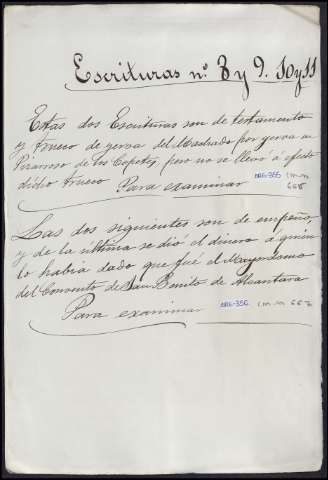 Escrituras nº. 8 y 9. 10 y 11
Estas dos Escrituras son de testamento
y trueco de yerva del Madrado por yerva en
Pizarroso de los Copetes, pero no se llevó á efecto
dicho trueco Para examinar ORG-355 (m.m 668
Las dos siguientes son de empeño,
y de la última se dió el dinero á quien
lo habia dado que fué el Mayordomo
del Convento de San Benito de Alcantara
Para examinar ORG-356 (m.m 667